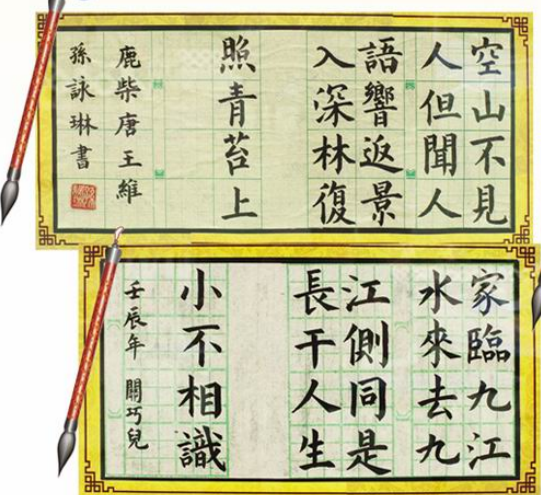 空山不見
人但聞人
語響返景
入深林復
照青苔上
鹿柴唐王維
孫詠琳書
家臨九江
水來去九
江側同是
長干人生
小不相識
壬辰年 關巧兒